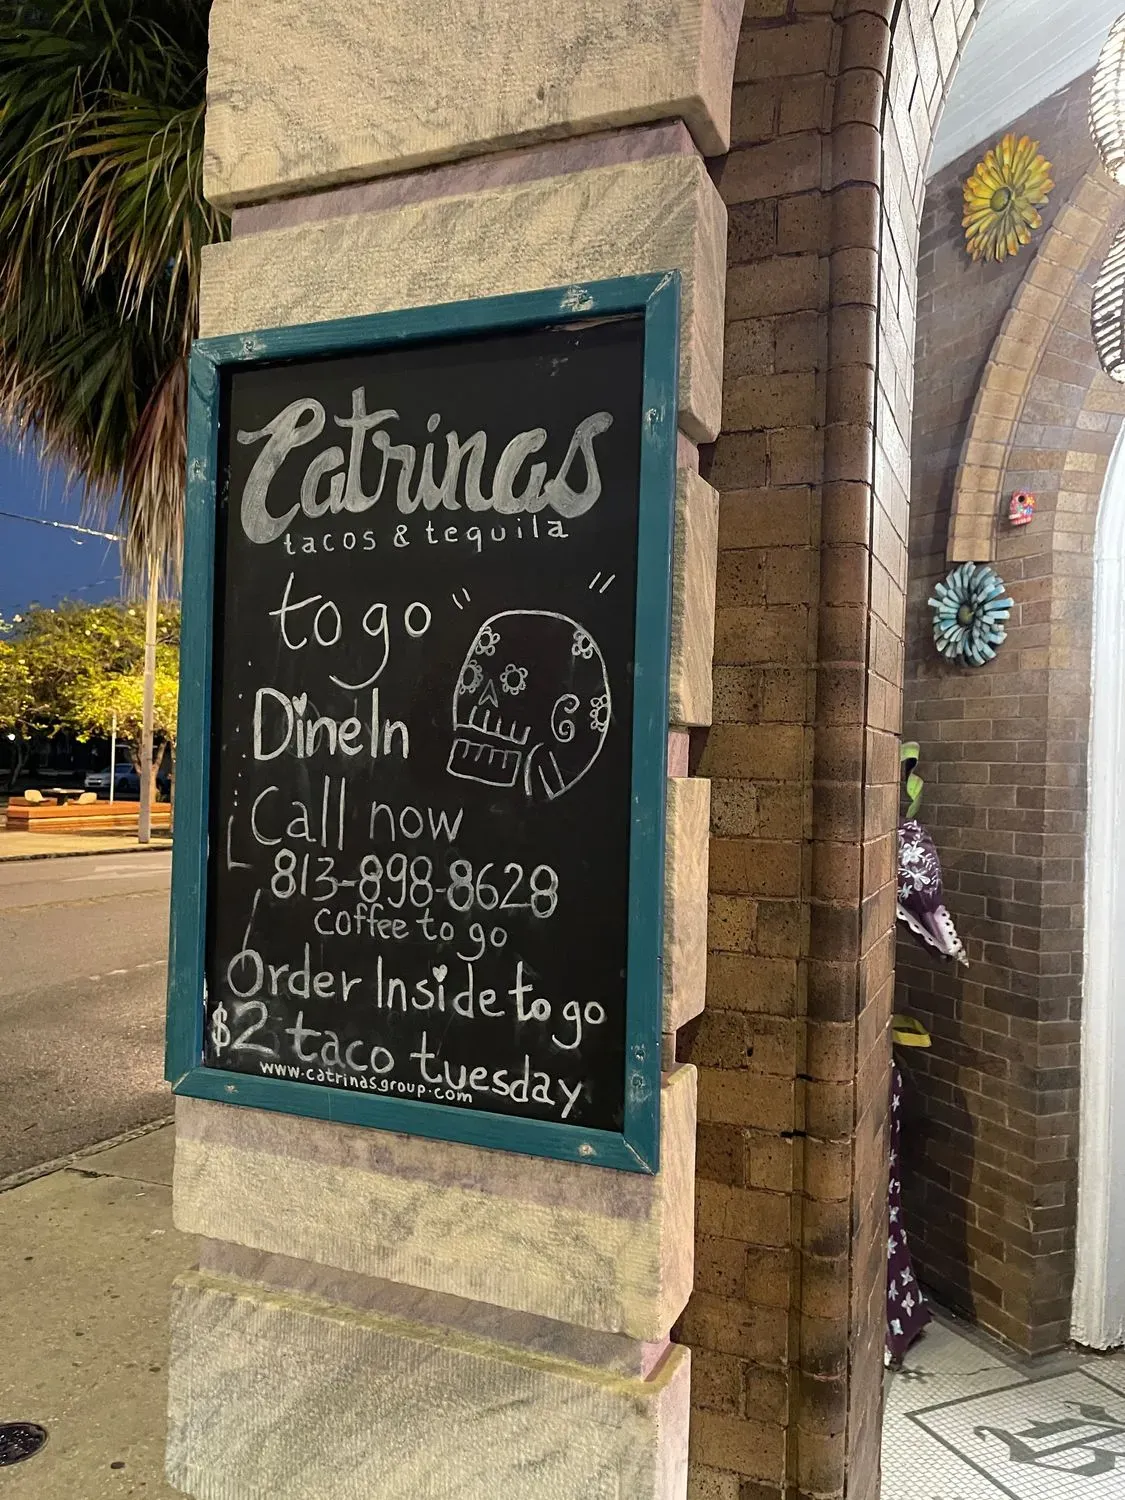 Catrinas
tacos & tequila
to go
Dine In
Call now
813-898-8628
coffee to go
Order Inside to go
$2 taco tuesday
www.catrinasgroup.com